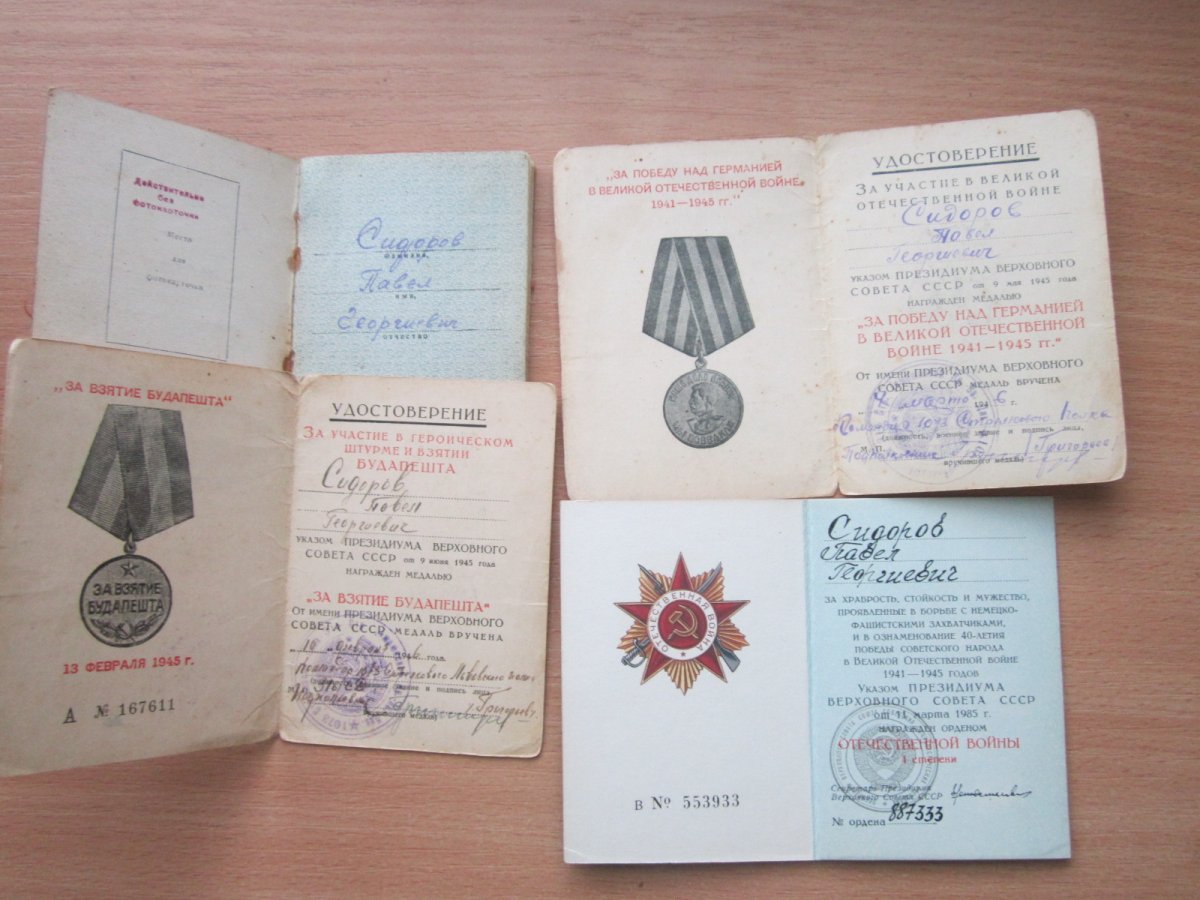 Действительно
без
фотокарточки
Место
для
фотокарточки
Сидоров
фамилия,
Павел
имя,
Георгиевич
отчество
„ЗА ПОБЕДУ НАД ГЕРМАНИЕЙ
В ВЕЛИКОЙ ОТЕЧЕСТВЕННОЙ ВОЙНЕ
1941—1945 гг."
УДОСТОВЕРЕНИЕ
ЗА УЧАСТИЕ В ВЕЛИКОЙ
ОТЕЧЕСТВЕННОЙ ВОЙНЕ
Сидоров
Павел
Георгиевич
УКАЗОМ ПРЕЗИДИУМА ВЕРХОВНОГО
СОВЕТА СССР от 9 мая 1945 года
НАГРАЖДЕН МЕДАЛЬЮ
„ЗА ПОБЕДУ НАД ГЕРМАНИЕЙ
В ВЕЛИКОЙ ОТЕЧЕСТВЕННОЙ
ВОЙНЕ 1941—1945 гг."
От имени ПРЕЗИДИУМА ВЕРХОВНОГО
СОВЕТА СССР МЕДАЛЬ ВРУЧЕНА
марта 1946 г.
1073 Стрелкового полка
(должность, военное звание и подпись лица,
М. П.
Подполковник Григорьев
вручившего медаль)
„ЗА ВЗЯТИЕ БУДАПЕШТА"
ЗА ВЗЯТИЕ
БУДАПЕШТА
13 ФЕВРАЛЯ 1945 г.
А № 167611
УДОСТОВЕРЕНИЕ
ЗА УЧАСТИЕ В ГЕРОИЧЕСКОМ
ШТУРМЕ И ВЗЯТИИ
БУДАПЕШТА
Сидоров
Павел
Георгиевич
УКАЗОМ ПРЕЗИДИУМА ВЕРХОВНОГО
СОВЕТА СССР от 9 июня 1945 года
НАГРАЖДЕН МЕДАЛЬЮ
„ЗА ВЗЯТИЕ БУДАПЕШТА"
От имени ПРЕЗИДИУМА ВЕРХОВНОГО
СОВЕТА СССР МЕДАЛЬ ВРУЧЕНА
1946 года.
Львовского
звание и подпись лица,
вручившего медаль)
ОТЕЧЕСТВЕННАЯ ВОЙНА
В № 553933
Сидоров
Павел
Георгиевич
ЗА ХРАБРОСТЬ, СТОЙКОСТЬ И МУЖЕСТВО,
ПРОЯВЛЕННЫЕ В БОРЬБЕ С НЕМЕЦКО-
ФАШИСТСКИМИ ЗАХВАТЧИКАМИ,
И В ОЗНАМЕНОВАНИЕ 40-ЛЕТИЯ
ПОБЕДЫ СОВЕТСКОГО НАРОДА
В ВЕЛИКОЙ ОТЕЧЕСТВЕННОЙ ВОЙНЕ
1941—1945 ГОДОВ
УКАЗОМ ПРЕЗИДИУМА
ВЕРХОВНОГО СОВЕТА СССР
от 11 марта 1985 г.
НАГРАЖДЕН ОРДЕНОМ
ОТЕЧЕСТВЕННОЙ ВОЙНЫ
I степени
Секретарь Президиума
Верховного Совета СССР
№ ордена 887333